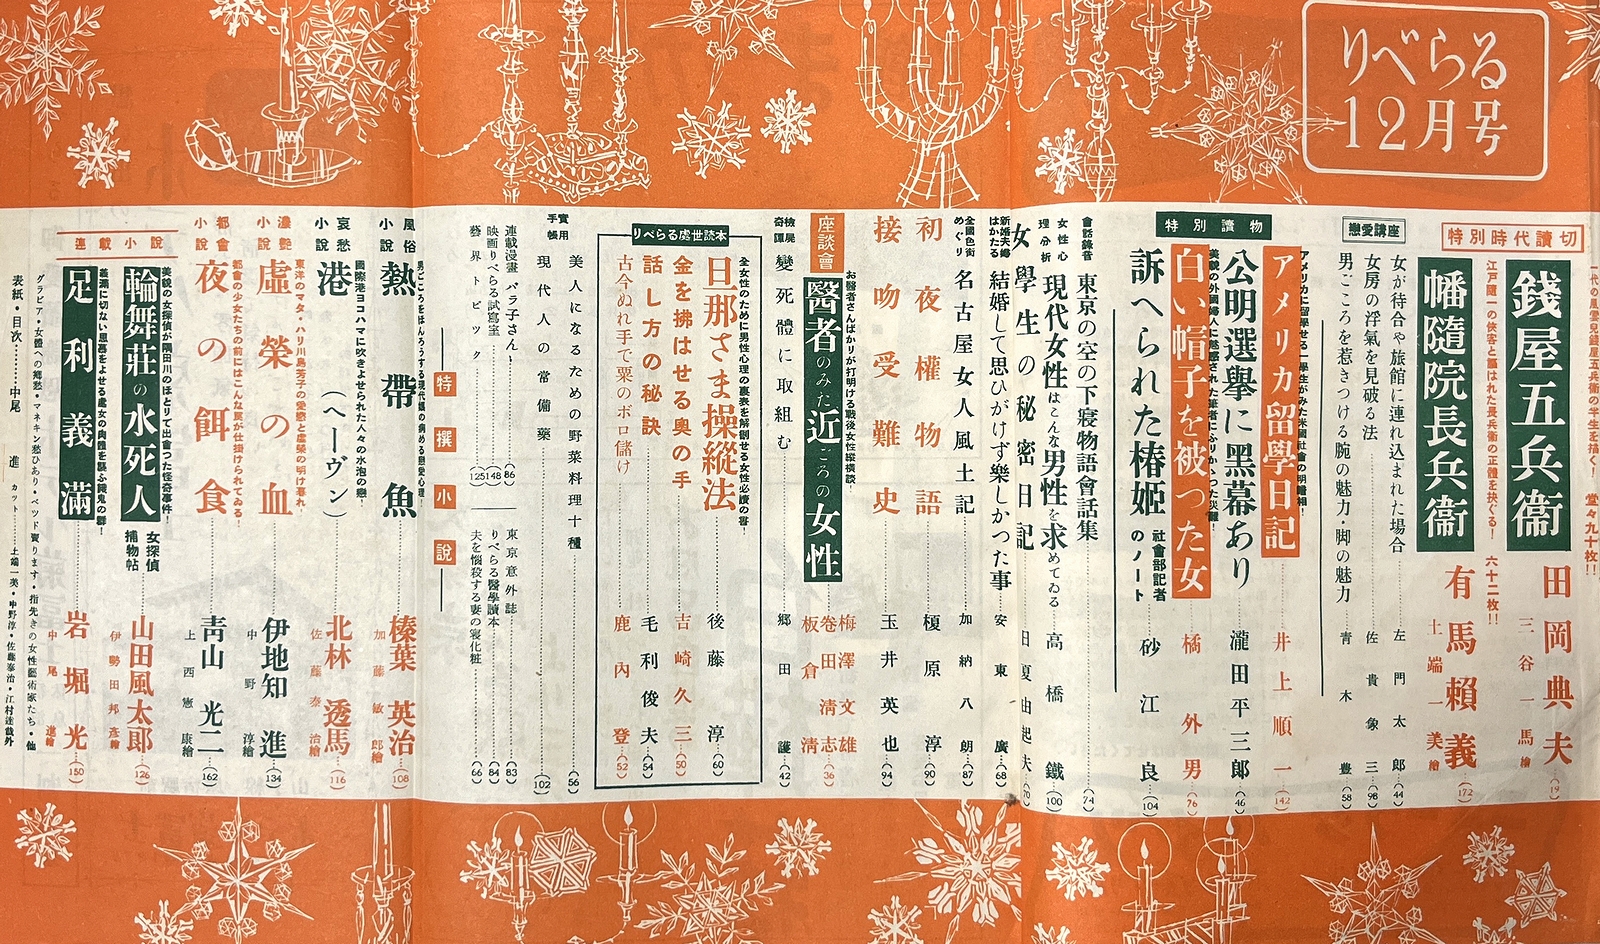 りべらる
12月号
特別時代讀切
錢屋五兵衞
田岡典夫
三谷一馬繪
(19)
江戸隨一の俠客と謳はれた長兵衞の正體を抉ぐる!
六十二枚!!
幡隨院長兵衞
有馬頼義
土端一美繪
(172)
戀愛講座
女が待合や旅館に連れ込まれた場合
左門太郎
(44)
女房の浮氣を見破る法
佐貴象三
(98)
男ごころを惹きつける腕の魅力・脚の魅力
青木豊
(58)
特別讀物
アメリカに留學せる一學生がみた米國社會の明暗相!
アメリカ留學日記
井上順一
(142)
公明選擧に黑幕あり
瀧田平三郎
(46)
美貌の外國婦人に魅惑された筆者にふりかゝつた災難!
白い帽子を被った女
橘外男
(76)
訴へられた椿姬
社會部記者のノート
砂江良
(104)
會話錄音
東京の空の下寢物語會話集
(74)
女性心理分析
現代女性はこんな男性を求めてゐる
高橋鐵
(100)
女學生の秘密日記
田夏由起夫
(70)
新婚夫婦はかたる
結婚して思ひがけず樂しかつた事
安東廣
(68)
全國色街めぐり
名古屋女人風土記
加納八朗
(87)
初夜權物語
榎原淳
(90)
接吻受難史
玉井英也
(94)
お醫者さんばかりが打明ける戰後女性縱橫談!
座談會
醫者のみた近ごろの女性
梅澤文雄
卷田清志
板倉清
(36)
檢屍奇譚
變死體に取組む
郷田護
(42)
りべらる處世読本
全女性のために男性心理の裏表を解剖せる女性必讀の書!
旦那さま操縱法
後藤淳
(60)
金を拂はせる奧の手
吉崎久三
(50)
話し方の秘訣
毛利俊夫
(54)
古今ぬれ手で粟のボロ儲け
鹿內登
(52)
實用手帳
美人になるための野菜料理十種
(56)
現代人の常備藥
(102)
連載漫畫 バラ子さん
(86)
映画りべらる試寫室
(148)
藝界トピック
(125)
東京意外誌
(83)
りべらる醫學讀本
(84)
夫を惱殺する妻の寢化粧
(66)
特撰小說
男ごころをほんろうする現代娘の病める戀愛心理!
風俗小說
熱帶魚
榛葉英治
加藤敏郎繪
(108)
國際港ヨコハマに吹きよせられた人々の水泡の戀!
哀愁小說
港(ヘーヴン)
北林透馬
佐藤泰治繪
(116)
東洋のマタ・ハリ川島芳子の愛慾と虛榮の明け暮れ!
濃艷小說
虛榮の血
伊地知進
中野淳繪
(134)
都會の少女たちの前にはこんな罠が仕掛けられてゐる!
都會小說
夜の餌食
靑山光二
上西憲康繪
(162)
連載小說
美貌の女探偵が隅田川のほとりで出會つた怪奇事件!
輪舞莊の水死人
女探偵捕物帖
山田風太郎
伊勢田邦彥繪
(126)
義滿に切ない思慕をよせる處女の肉體を襲ふ餓鬼の群!
足利義滿
岩堀光
中尾進繪
(150)
グラビア・女體への郷愁・マネキン愁ひあり・ベッド賣ります・指先きの女性藝術家たち・他
表紙・目次……中尾進
カット……土端一美・中野淳・佐藤泰治・江村達哉外